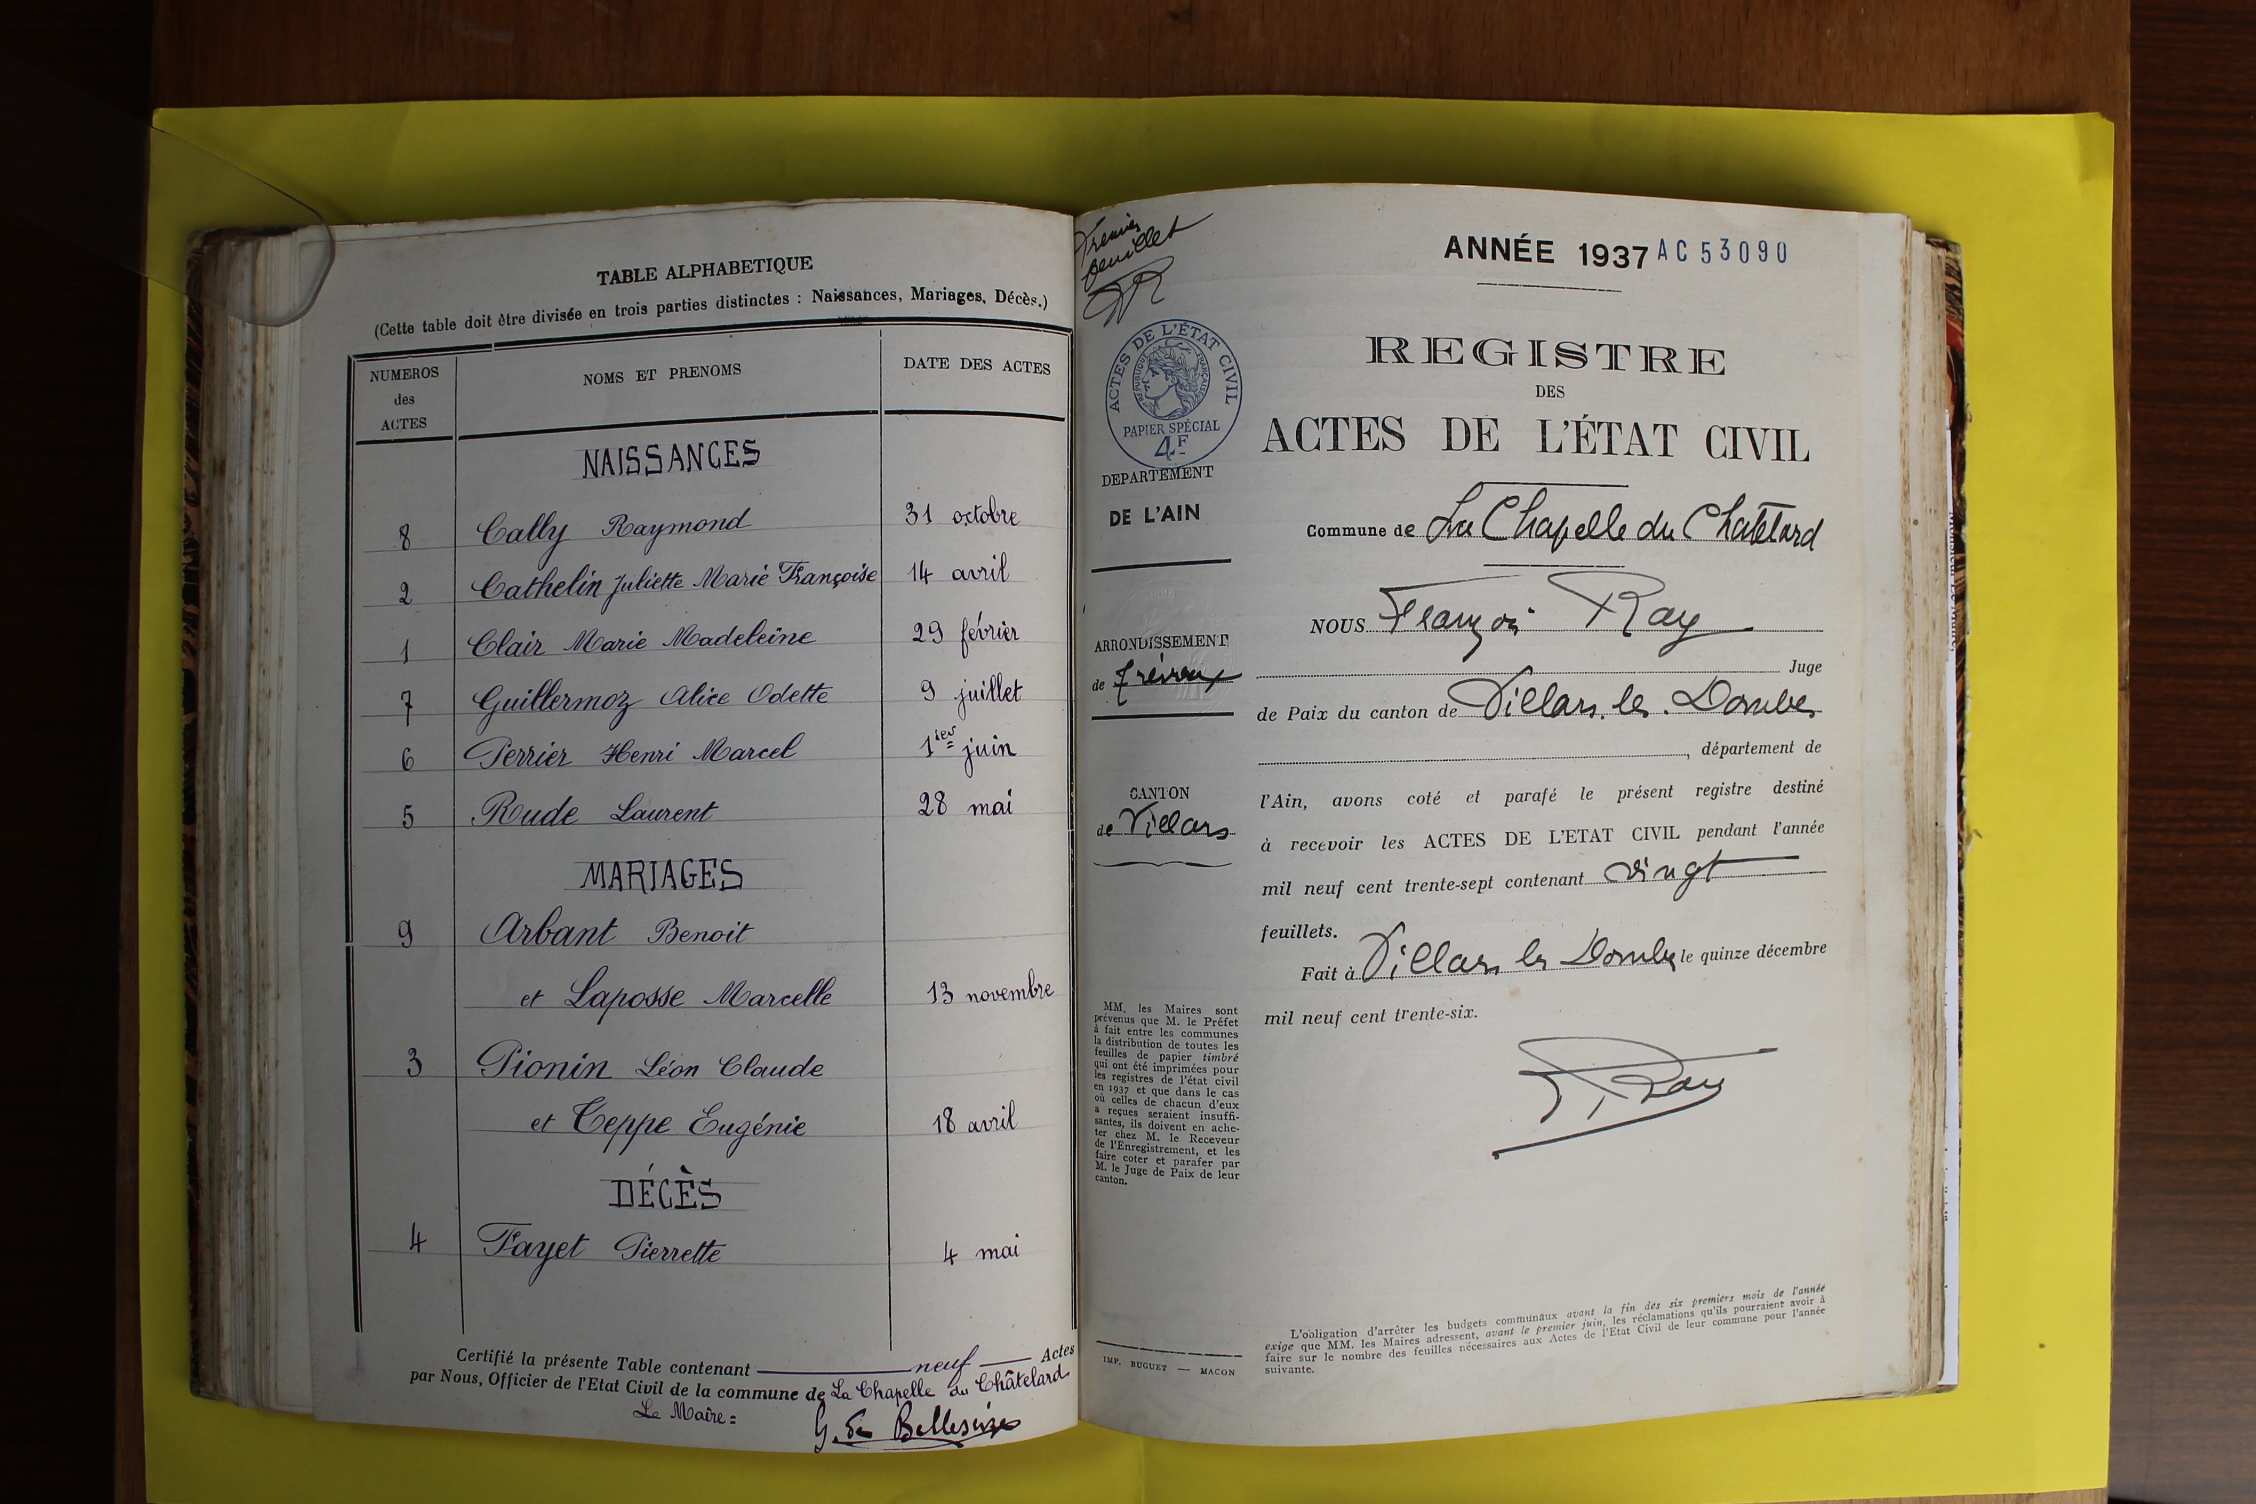 TABLE ALPHABETIQUE
(Cette table doit être divisée en trois parties distinctes : Naissances, Mariages, Décès.)
NUMEROS des ACTES NOMS ET PRENOMS DATE DES ACTES
NAISSANCES
8 Cally Raymond 31 octobre
2 Cathelin Juliette Marie Françoise 14 avril
1 Clair Marie Madeleine 29 février
7 Guillermoz Alice Odette 9 juillet
6 Perrier Henri Marcel 1ier juin
5 Rude Laurent 28 mai
MARIAGES
9 Arbant Benoit
et Laposse Marcelle 13 novembre
3 Pionin Léon Claude
et Teppe Eugénie 18 avril
DÉCÈS
4 Fayet Pierrette 4 mai
Certifié la présente Table contenant neuf Actes
par Nous, Officier de l'Etat Civil de la commune de La Chapelle du Châtelard
Le Maire :
G. de Bellescize
Premier
feuillet
FR
ACTES DE L'ÉTAT CIVIL
RÉPUBLIQUE FRANÇAISE
PAPIER SPÉCIAL
4F
DEPARTEMENT
DE L'AIN
ARRONDISSEMENT
de Trévoux
CANTON
de Villars
MM. les Maires sont
prévenus que M. le Préfet
à fait entre les communes
la distribution de toutes les
feuilles de papier timbré
qui ont été imprimées pour
les registres de l'état civil
en 1937 et que dans le cas
où celles de chacun d'eux
a reçues seraient insuffi-
santes, ils doivent en ache-
ter chez M. le Receveur
de l'Enregistrement, et les
faire coter et parafer par
M. le Juge de Paix de leur
canton.
IMP. BUGUET — MACON
ANNÉE 1937 AC 53090
REGISTRE
DES
ACTES DE L'ÉTAT CIVIL
Commune de La Chapelle du Chatelard
NOUS François Ray
Juge
de Paix du canton de Villars les Dombes
, département de
l'Ain, avons coté et parafé le présent registre destiné
à recevoir les ACTES DE L'ETAT CIVIL pendant l'année
mil neuf cent trente-sept contenant vingt
feuillets.
Fait à Villars les Dombes le quinze décembre
mil neuf cent trente-six.
F Ray
L'obligation d'arrêter les budgets communaux avant la fin des six premiers mois de l'année
exige que MM. les Maires adressent, avant le premier juin, les réclamations qu'ils pourraient avoir à
faire sur le nombre des feuilles nécessaires aux Actes de l'Etat Civil de leur commune pour l'année
suivante.